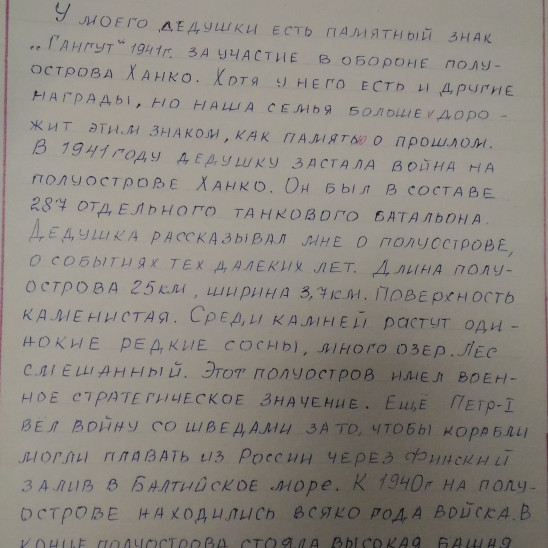 У моего дедушки есть памятный знак
„Гангут" 1941г. за участие в обороне полу-
острова Ханко. Хотя у него есть и другие
награды, но наша семья больше доро-
жит этим знаком, как памятью о прошлом.
В 1941 году дедушку застала война на
полуострове Ханко. Он был в составе
287 отдельного танкового батальона.
Дедушка рассказывал мне о полуострове,
о событиях тех далеких лет. Длина полу-
острова 25км, ширина 3,7км. Поверхность
каменистая. Среди камней растут оди-
нокие редкие сосны, много озер. Лес
смешанный. Этот полуостров имел воен-
ное стратегическое значение. Ещё Петр-I
вёл войну со шведами за то, чтобы корабли
могли плавать из России через Финский
залив в Балтийское море. К 1940г на полу-
острове находились всяко рода войска. В
конце полуострова стояла высокая башня